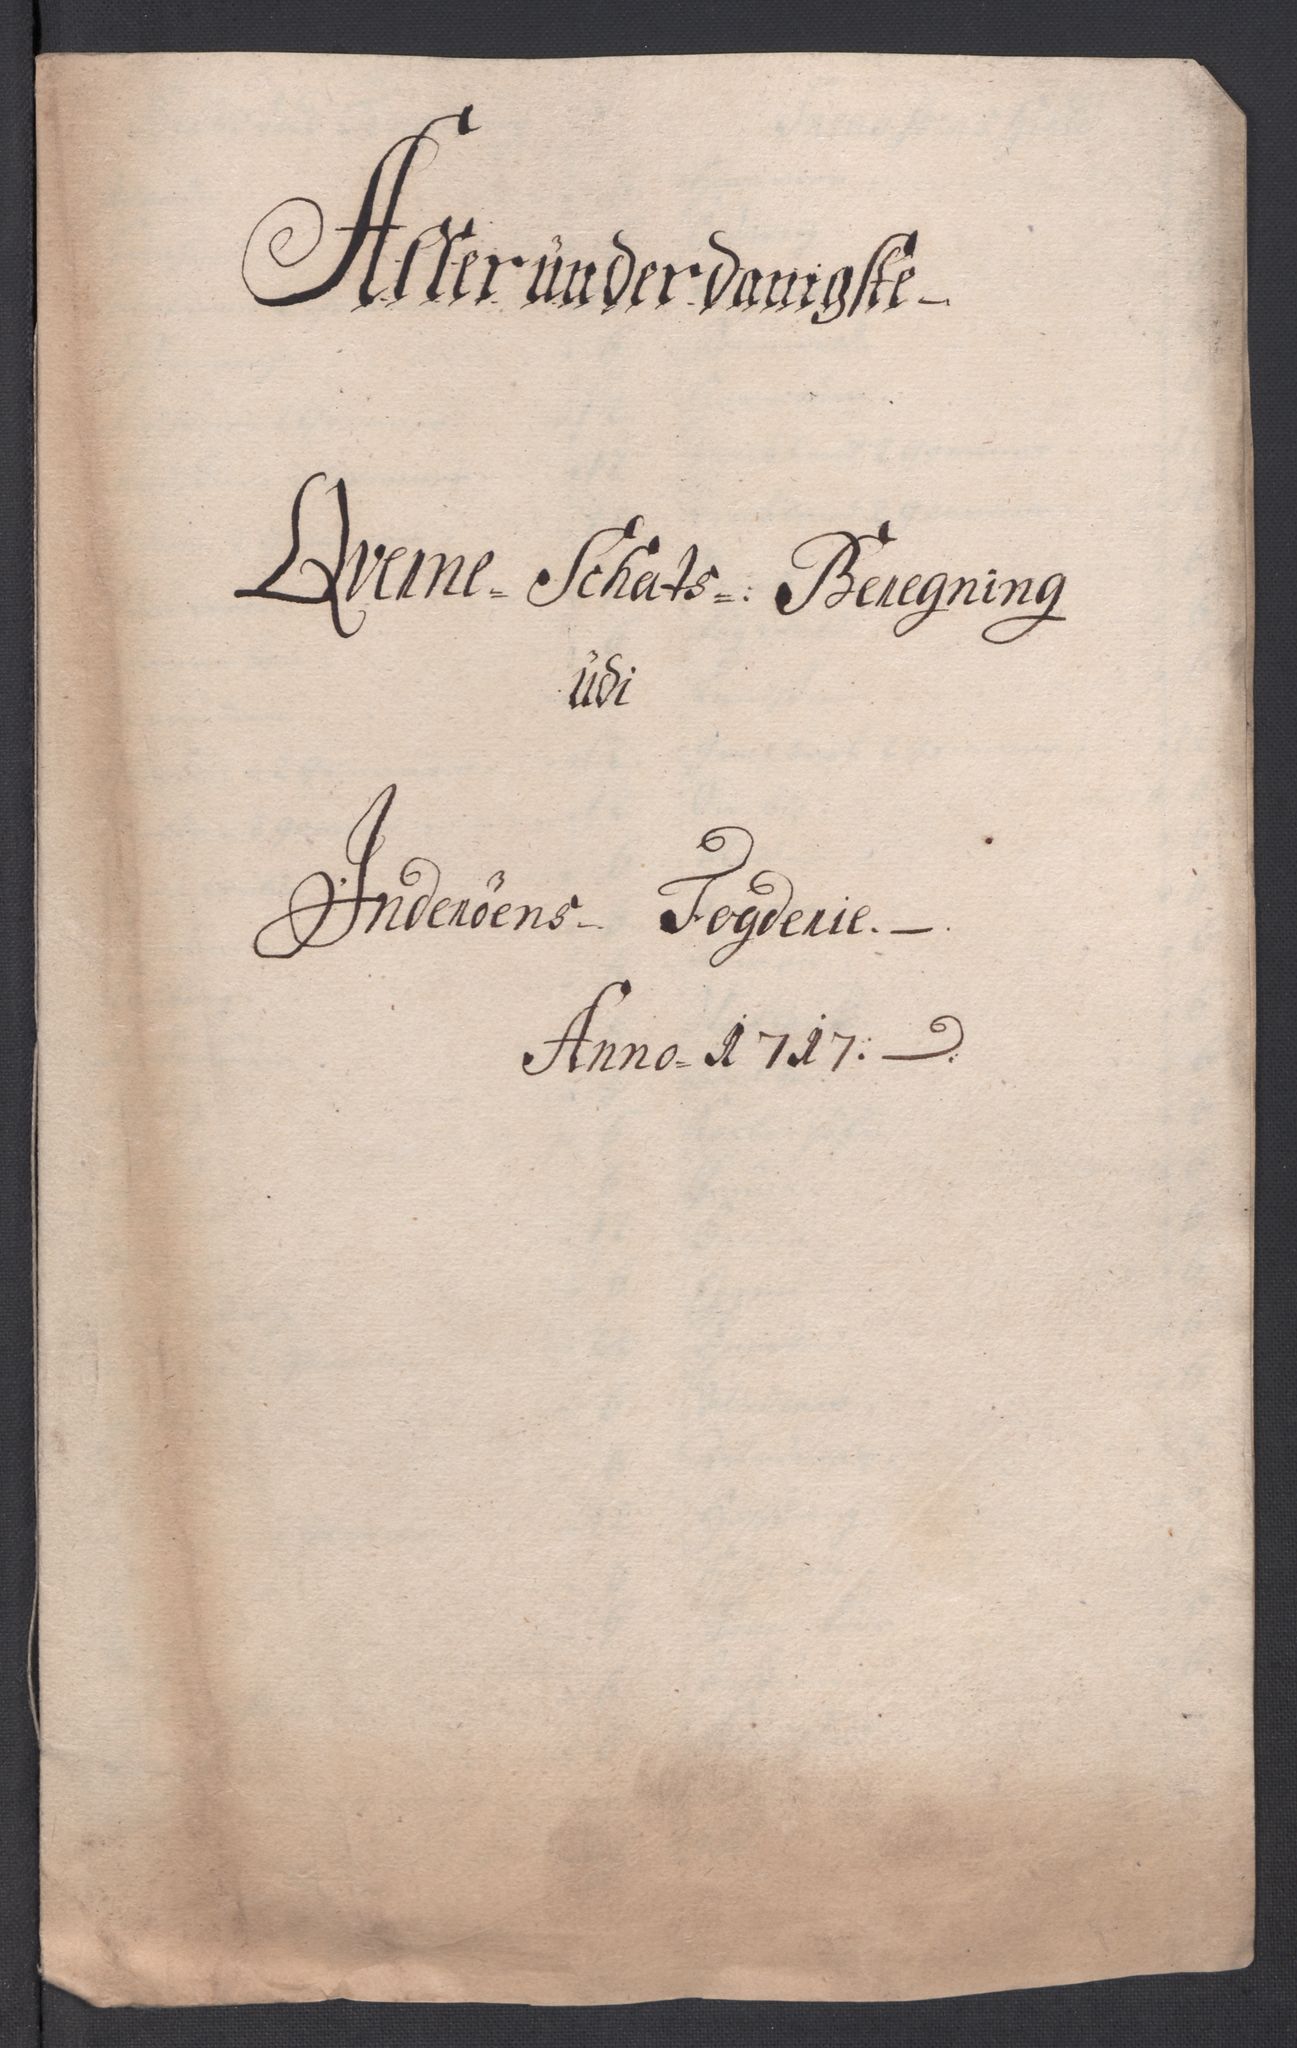 Alleründerdanigste
Qverne- Schats-: Beregning
üdi
Inderöens- Fogderie.
Anno- 1717.